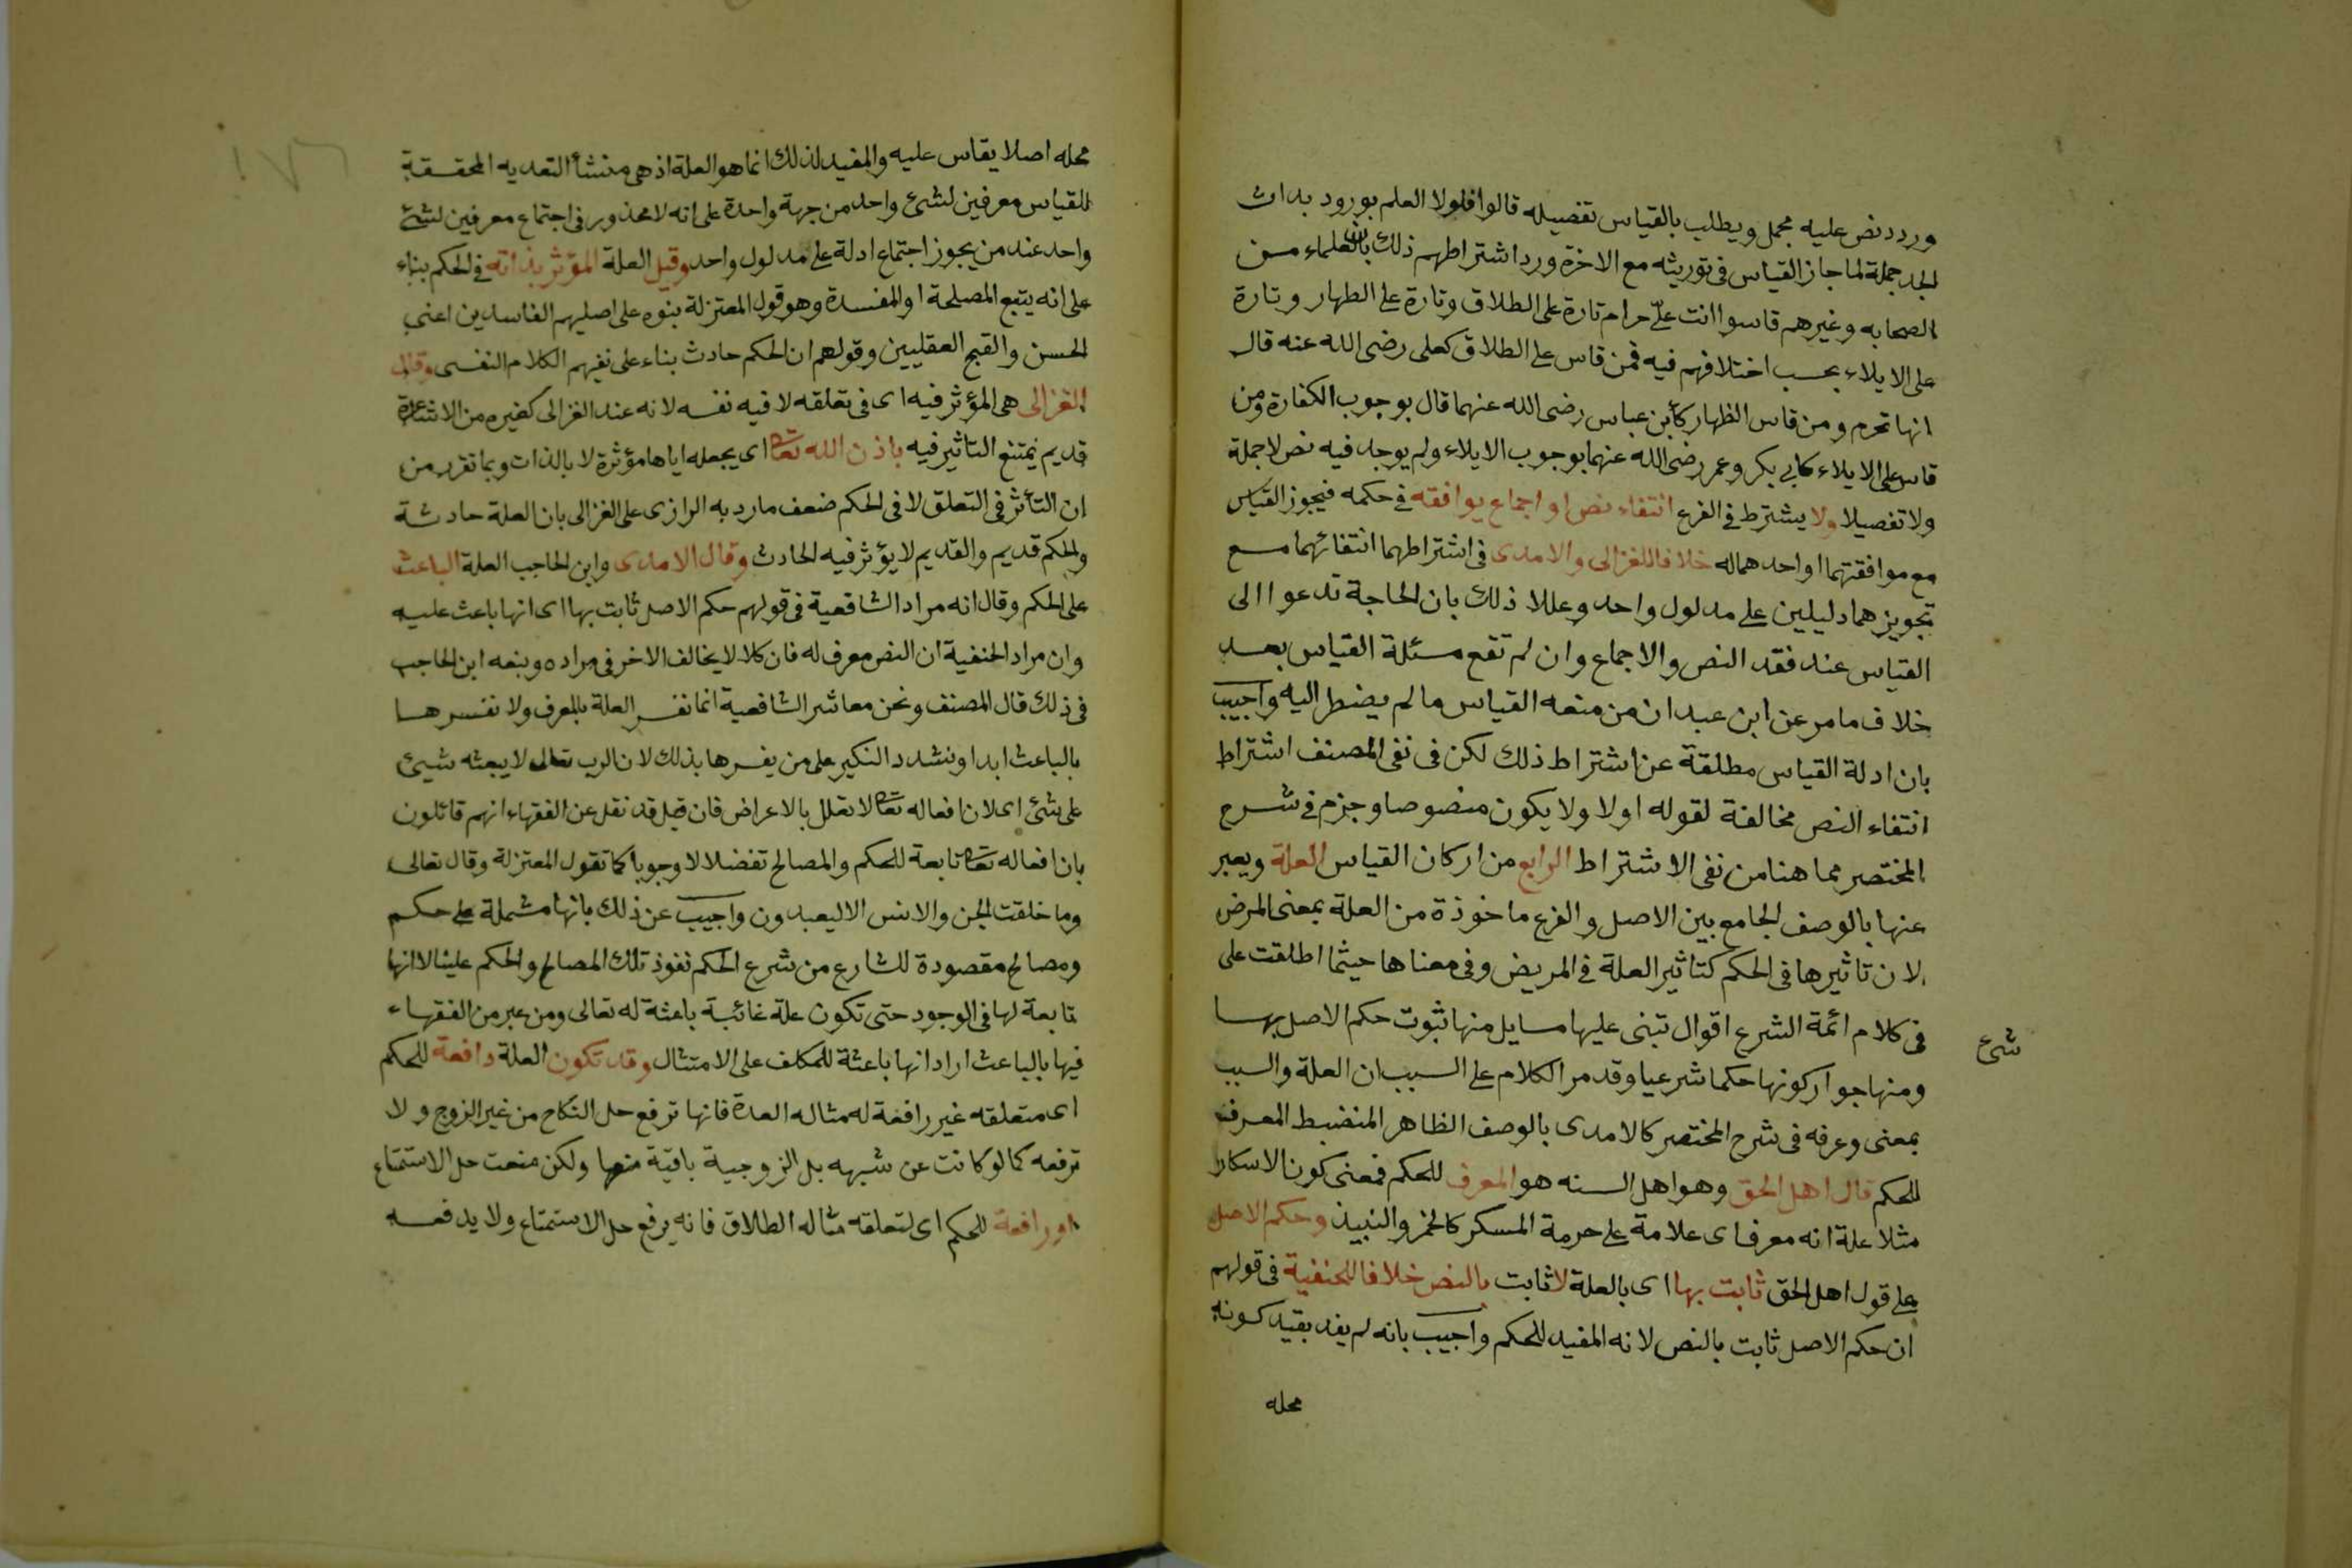 ورد نص عليه مجمل ويطلب بالقياس تفصيله قالوا فلولا العلم بورود بدات
الجد جملة لما جاز القياس في توريثه مع الاخرة ورد اشتراطهم ذلك بان العلماء من
الصحابه وغيرهم قاسوا انت عليّ حرام تارة على الطلاق وتارة على الظهار وتارة
على الايلاء بحسب اختلافهم فيه فمن قاس على الطلاق كعلى رضى الله عنه قال
انها تحرم ومن قاس الظهار كأبن عباس رضى الله عنهما قال بوجوب الكفارة ومن
قاس على الايلاء كابي بكر وعمر رضى الله عنهما بوجوب الايلاء ولم يوجد فيه نص لا جملة
ولا تفصيلا ولا يشترط في الفرع انتفاء نص او اجماع يوافقه في حكمه فيجوز القياس
مع موافقتهما او احدهما له خلافا للغزالى والامدى في اشتراطهما انتفائهما مع
تجويزهما دليلين على مدلول واحد وعللا ذلك بان الحاجة تدعوا الى
القياس عند فقد النص والاجماع وان لم تقع مسئلة القياس بعد
خلاف مامر عن ابن عبدان من منعه القياس ما لم يضطر اليه واجيب
بان ادلة القياس مطلقة عن اشتراط ذلك لكن في نفى المصنف اشتراط
انتفاء النص مخالفة لقوله اولا ولا يكون منصوصا وجزم في شرح
المختصر مما هنا من نفى الاشتراط الرابع من اركان القياس العلة ويعبر
عنها بالوصف الجامع بين الاصل والفرع ماخوذة من العلة بمعنى المرض
لان تاثيرها في الحكم كتاثير العلة في المريض وفي معناها حيثما اطلقت على
شئ
في كلام ائمة الشرع اقوال تبنى عليها مسايل منها ثبوت حكم الاصل بها
ومنها جواركونها حكما شرعيا وقد مر الكلام على السبب ان العلة والسبب
بمعنى وعرفه في شرح المختصر كالامدى بالوصف الظاهر المنضبط المعرف
للحكم قال اهل الحق وهو اهل السنه هو المعرف للحكم فمعنى كون الاسكار
مثلا علة انه معرف اى علامة على حرمة المسكر كالخمر والنبيذ وحكم الاصل
على قول اهل الحق ثابت بها اى بالعلة لا ثابت بالنص خلافا للحنفية في قولهم
ان حكم الاصل ثابت بالنص لانه المفيد للحكم واجيب بانه لم يفد بقيد كونه
محله
محله اصلا يقاس عليه والمفيد لذلك انما هو العلة اذ هى منشأ التعديه المحققة
للقياس معرفين لشئ واحد من جهة واحدة على انه لا محذور في اجتماع معرفين لشئ
واحد عند من يجوز اجتماع ادلة على مدلول واحد وقيل العلة المؤثر بذاته في الحكم بناء
على انه يتبع المصلحة او المفسدة وهو قول المعتزلة بنوه على اصليهم الفاسدين اعنى
الحسن والقبح العقليين وقولهم ان الحكم حادث بناء على نفيهم الكلام النفسى وقال
الغزالى هى المؤثر فيه اى في تعلقه لا فيه نفسه لانه عند الغزالى كغيره من الاشاعرة
قديم يمتنع التاثير فيه باذن الله تعا اى يجعله اياها مؤثرة لا بالذات وبما تقرر من
ان التأثر في التعلق لا في الحكم ضعف مارد به الرازى على الغزالى بان العلة حادثة
والحكم قديم والقديم لا يؤثر فيه الحادث وقال الامدى وابن الحاجب العلة الباعث
على الحكم وقال انه مراد الشافعية في قولهم حكم الاصل ثابت بها اى انها باعث عليه
وان مراد الحنفية ان النص معرف له فان كلا لا يخالف الاخر في مراده وتبعه ابن الحاجب
في ذلك قال المصنف ونحن معاشر الشافعية انما نفسر العلة بالمعرف ولا نفسرها
بالباعث ابدا ونشدد النكير على من يفسرها بذلك لان الرب تعالى لا يبعثه شيئ
على شئ اى لان افعاله تعا لا تعلل بالاعراض فان قيل قد نقل عن الفقهاء انهم قائلون
بان افعاله تعا تابعة للحكم والمصالح تفضلا لا وجوبا كما تقول المعتزلة وقال تعالى
وما خلقت الجن والانس الا ليعبدون واجيب عن ذلك بانها مشملة على حكم
ومصالح مقصودة للشارع من شرع الحكم نفوذ تلك المصالح والحكم علينا لا انها
تابعة لها في الوجود حتى تكون علة غائبة باعثة له تعالى ومن عبر من الفقهاء
فيها بالباعث اراد انها باعثة للمكلف على الامتثال وقد تكون العلة دافعة للحكم
اى متعلقه غير رافعة له مثاله العدة فانها ترفع حل النكاح من غير الزوج ولا
ترفعه كما لو كانت عن شبهه بل الزوجية باقية منها ولكن منعت حل الاستمتاع
او رافعة للحكم اى لتعلقه مثاله الطلاق فانه يرفع حل الاستمتاع ولا يدفعه